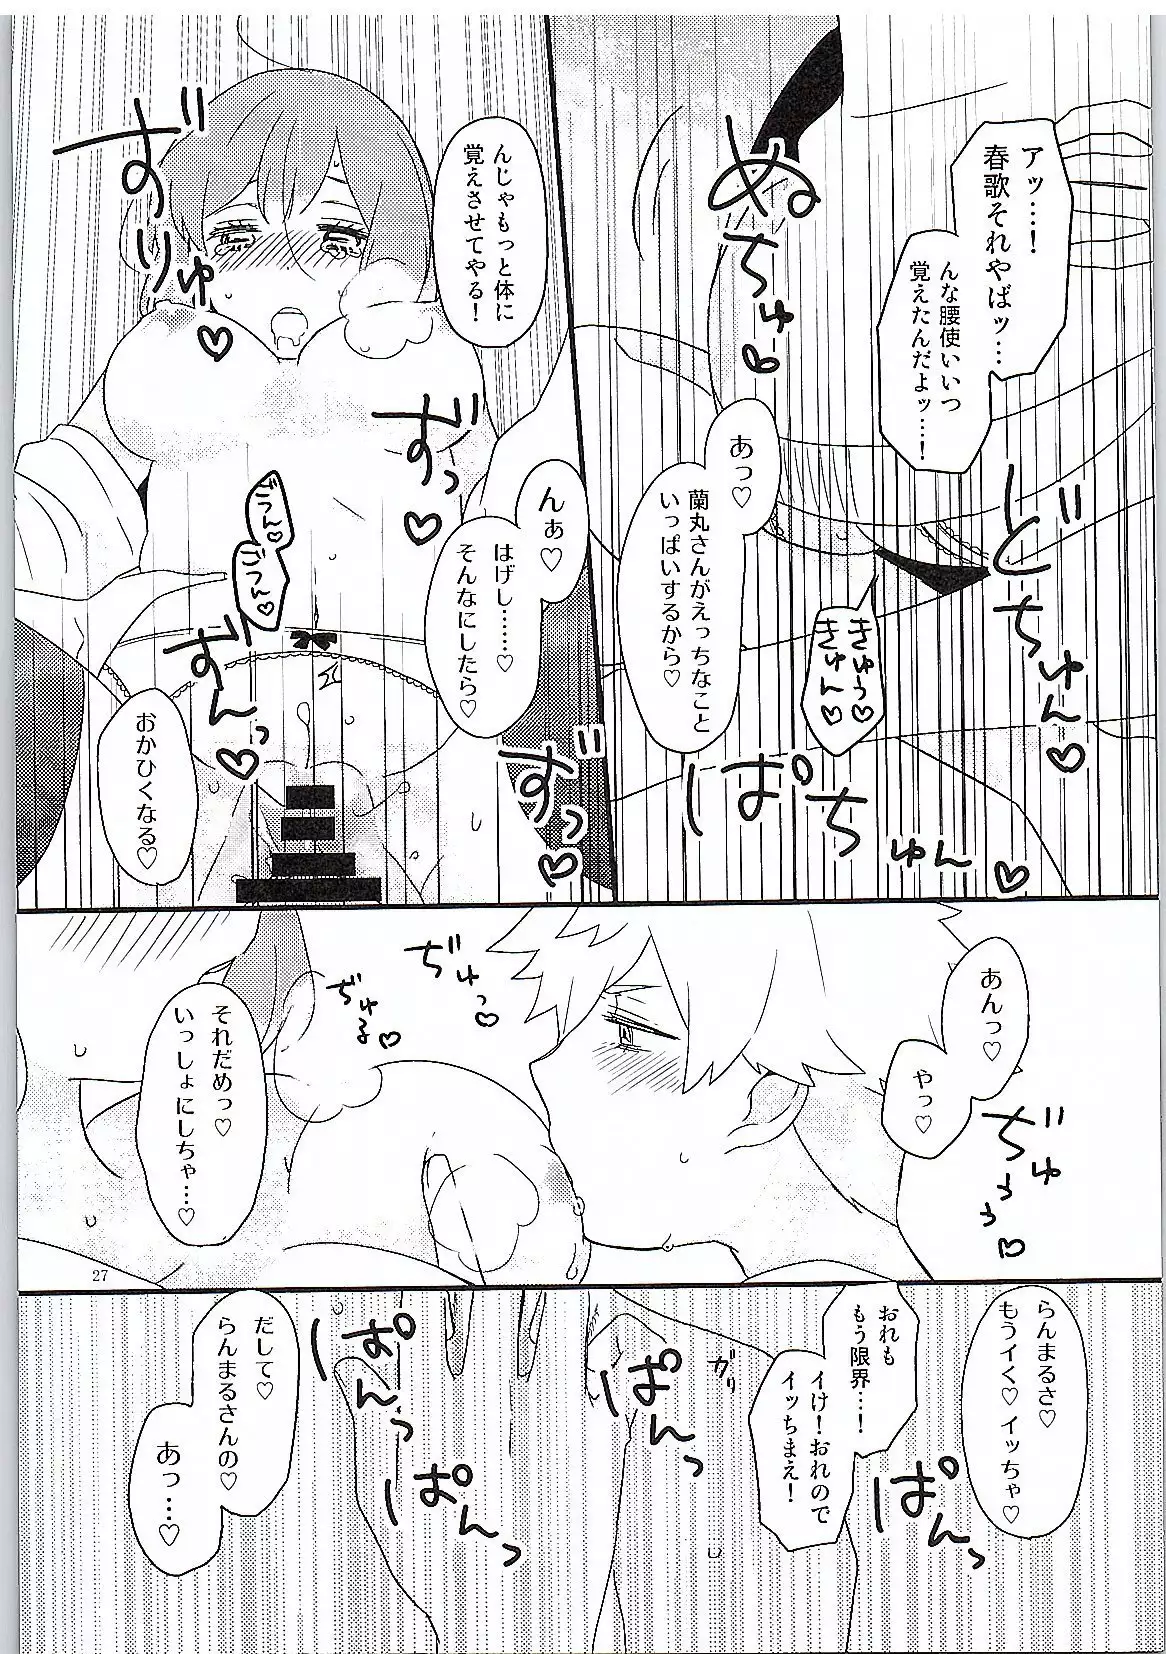 アッ…！
春歌それやばッ…
んな腰使いいつ
覚えたんだよッ…！
ぬちゅ♡
どちゅん♡
あっ♡
蘭丸さんがえっちなこと
いっぱいするから♡
きゅぅ♡
きゅん♡
ぱちゅん♡
んじゃもっと体に
覚えさせてやる！
ずりゅ♡
ずっ♡
んぁ♡
はげし……♡
そんなにしたら♡
ごつん♡
ごつん♡
ずんっ♡
ずっ♡
おかひくなる♡
あんっ♡
やっ♡
ぢゅぅぅ♡
ぢゅっ♡
ぢゅる♡
それだめっ♡
いっしょにしちゃ…♡
27
らんまるさ♡
もうイく♡イッちゃ♡
おれも
もう限界…！
イけ！おれので
イッちまえ！
ぱんっ
ガリ
ぱんっ
ぱんっ
ぱんっ
だして♡
らんまるさんの♡
あっ…♡